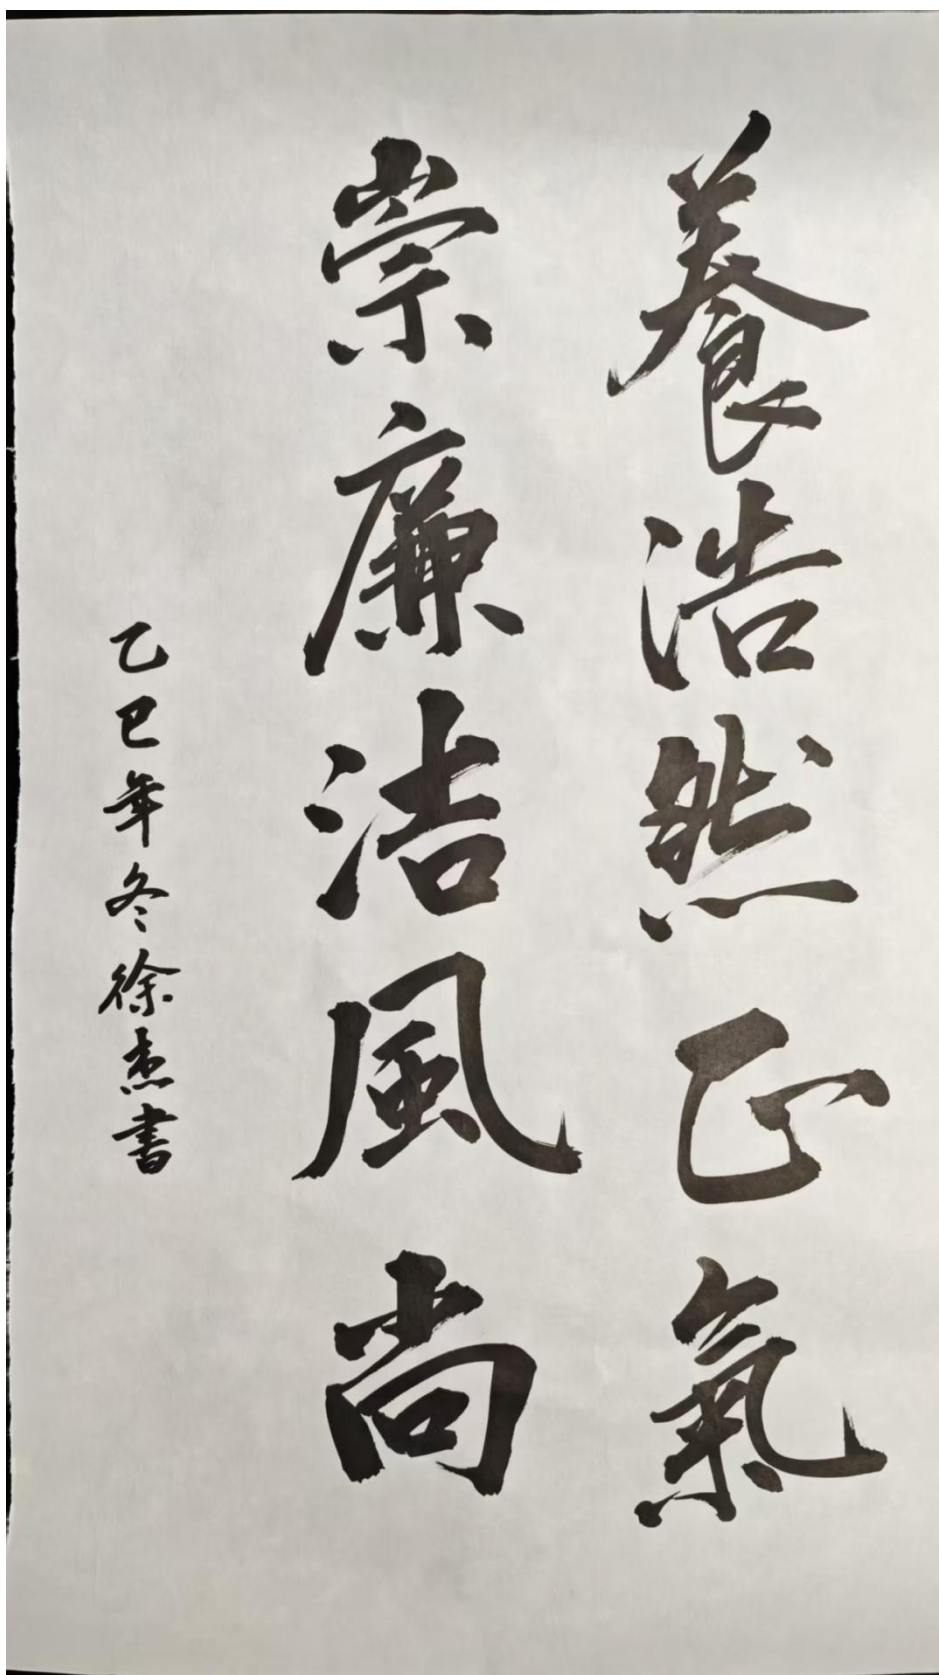 養浩然正氣
崇廉洁風尚
乙巳年冬徐杰書